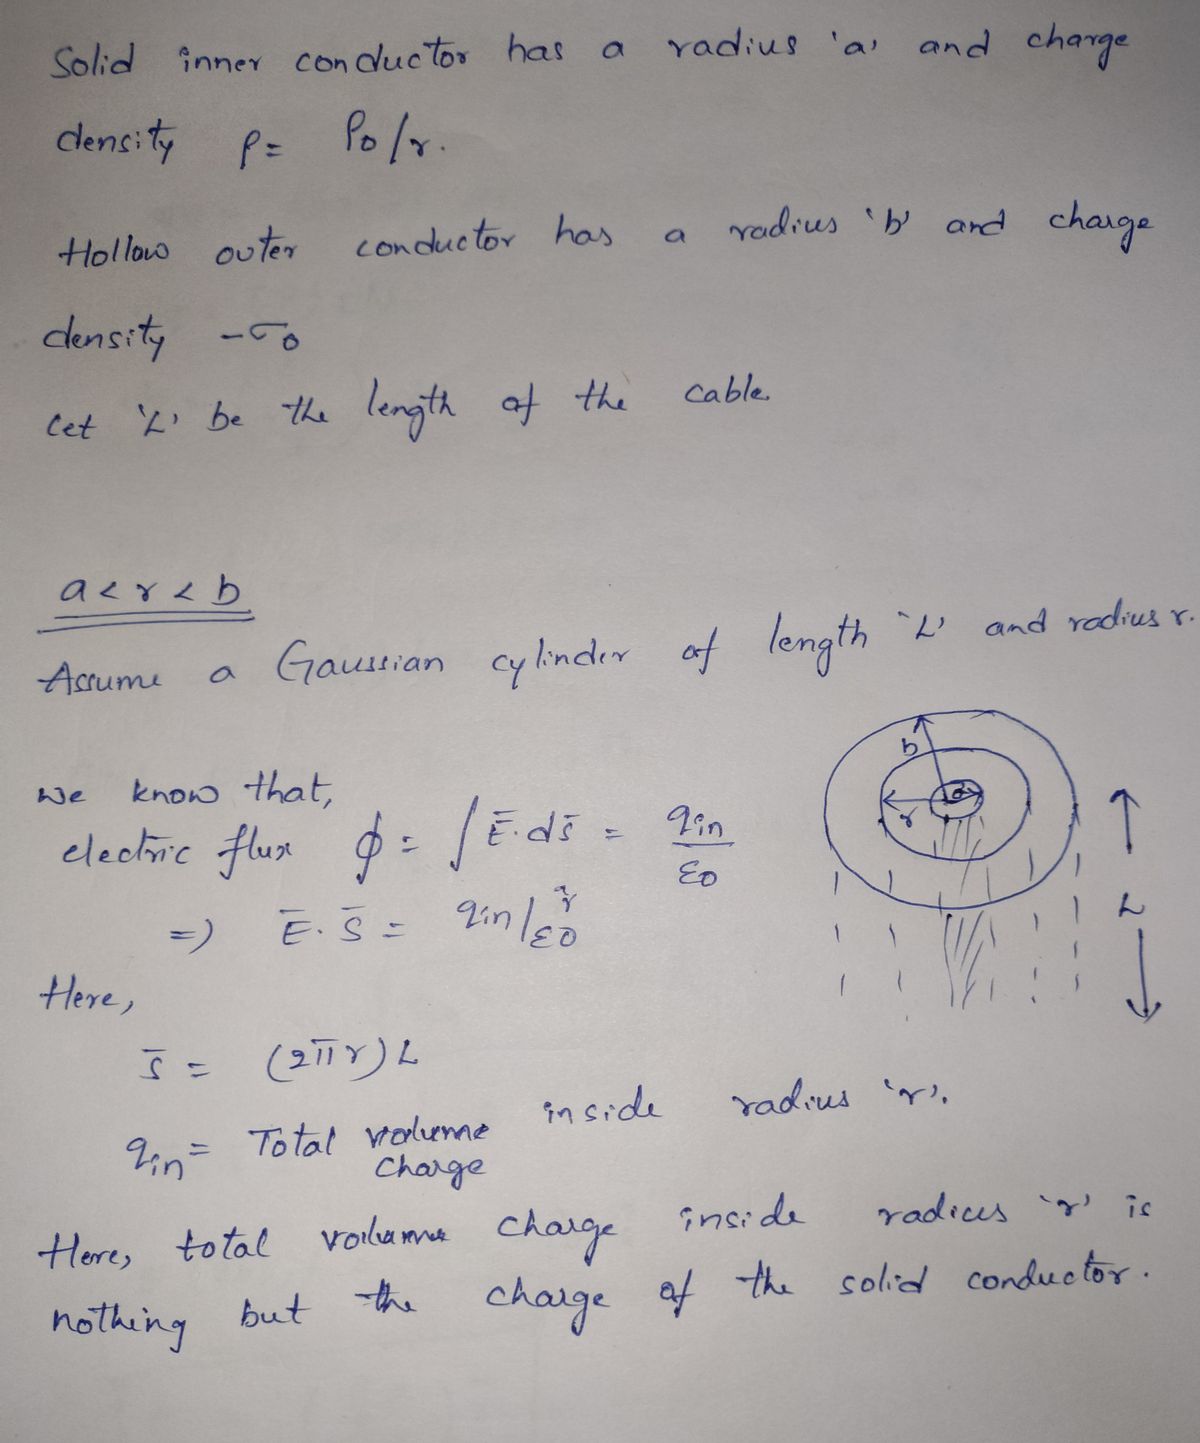 Solid inner conductor has a radius 'a' and charge
density ρ = ρ0/r.
Hollow outer conductor has a radius 'b' and charge
density -σ0
Let 'L' be the length of the cable.
a < r < b
Assume a Gaussian cylinder of length 'L' and radius r.
we know that,
electric flux ϕ = ∫ Ē.ds̄ = qin/ε0
=) Ē.S̄ = qin/ε0
Here,
s̄ = (2πr)L
qin = Total volume charge inside radius 'r'.
Here, total volume charge inside radius 'r' is
nothing but the charge of the solid conductor.
b
a
r
L